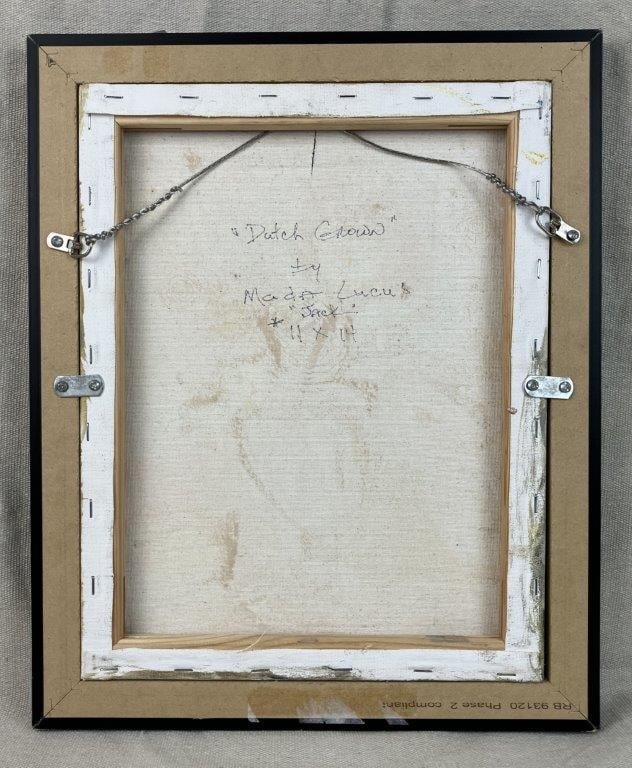 "Dutch Crown"
by
Mada Lucu's
"Jack"
* 11 x 14
RB 93120 Phase 2 compliant